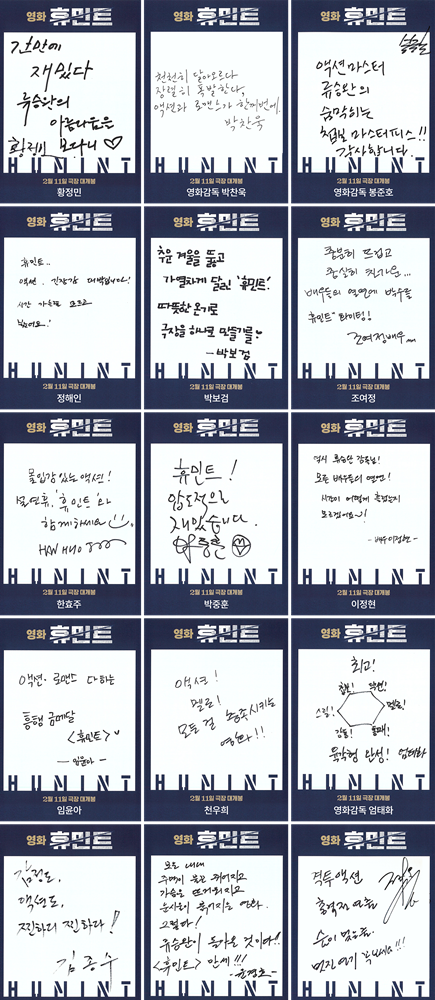 영화 휴민트
진안에
재밌다
류승완의
아름다움은
황정민 보다니 ♡
HUMINT
2월 11일 극장 대개봉
황정민
영화 휴민트
천천히 달아오르다
장렬히 폭발한다,
액션과 로맨스가 한꺼번에.
박찬욱
HUMINT
2월 11일 극장 대개봉
영화감독 박찬욱
영화 휴민트
액션마스터
류승완의
숨막히는
첩보 마스터피스!!
감사합니다.
HUMINT
2월 11일 극장 대개봉
영화감독 봉준호
영화 휴민트
휴민트..
액션, 긴장감 대박입니다!
시간 가는줄 모르고
봤어요..!
HUMINT
2월 11일 극장 대개봉
정해인
영화 휴민트
추운 겨울을 뚫고
가열차게 달린 '휴민트'!
따뜻한 온기로
극장을 하나로 만들기를♥
-박보검
HUMINT
2월 11일 극장 대개봉
박보검
영화 휴민트
충분히 뜨겁고
충실히 차가운...
배우들의 열연에 박수를
휴민트" 화이팅!
조여정배우
HUMINT
2월 11일 극장 대개봉
조여정
영화 휴민트
몰입감있는 액션!
설연휴, '휴민트'와
함께하세요
HAN HYO JOO
HUMINT
2월 11일 극장 대개봉
한효주
영화 휴민트
휴민트!
압도적으로
재밌습니다.
박중훈
HUMINT
2월 11일 극장 대개봉
박중훈
영화 휴민트
역시 류승완 감독님!
모든 배우들의 열연!
시간이 어떻게 흘렀는지
모르겠어요~!
-배우 이정현-
HUMINT
2월 11일 극장 대개봉
이정현
영화 휴민트
액션·로맨스 다하는
흥행 금메달
<휴민트>♥
-임윤아-
HUMINT
2월 11일 극장 대개봉
임윤아
영화 휴민트
액션!
멜로!
모든 걸 충족시키는
영화!!
HUMINT
2월 11일 극장 대개봉
천우희
영화 휴민트
최고!
첩보! 액션!
스릴! 멜로!
감동!
육각형 완성! 엄태화
HUMINT
2월 11일 극장 대개봉
영화감독 엄태화
영화 휴민트
감정도,
액션도,
찐하디 찐하다!
김종수
HUMINT
영화 휴민트
보는 내내
주먹이 불끈 쥐어지고
가슴은 뜨거워지고
눈시울이 붉어지는 영화.
그렇다!
류승완이 돌아온 것이다!!
<휴민트> 만세!!!
-윤경호-
HUMINT
영화 휴민트
격투액션
총격전
숨이 멎을듯.
멋진 연기 꼭 보세요!!!
HUMINT